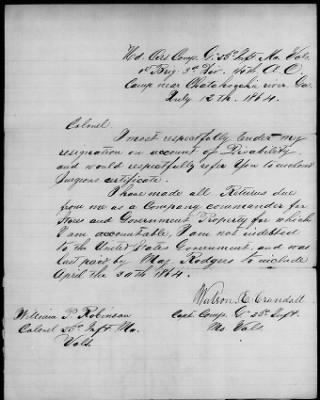 Hd. Qrs Comp. G. 25th Inft Mo. Vols.
1st Brig. 3d Div. 15th A. C.
Camp near Chatahoochie river Ga.
July 12th. 1864.
Colonel.
I most respectfully tender my
resignation on account of Disability
and would respectfully refer You to inclosed
Surgeons certificate.
I have made all Returns due
from me as a Company commander for
Stores and Government Property for which
I am accountable, I am not indebted
to the United States Government, and was
last paid by Maj. Rodgers to include
April the 30th 1864.
Watson E. Crandall
Capt. Comp. G. 25th Inft.
Mo Vols.
William P. Robinson
Colonel 25th Inft. Mo.
Vols.